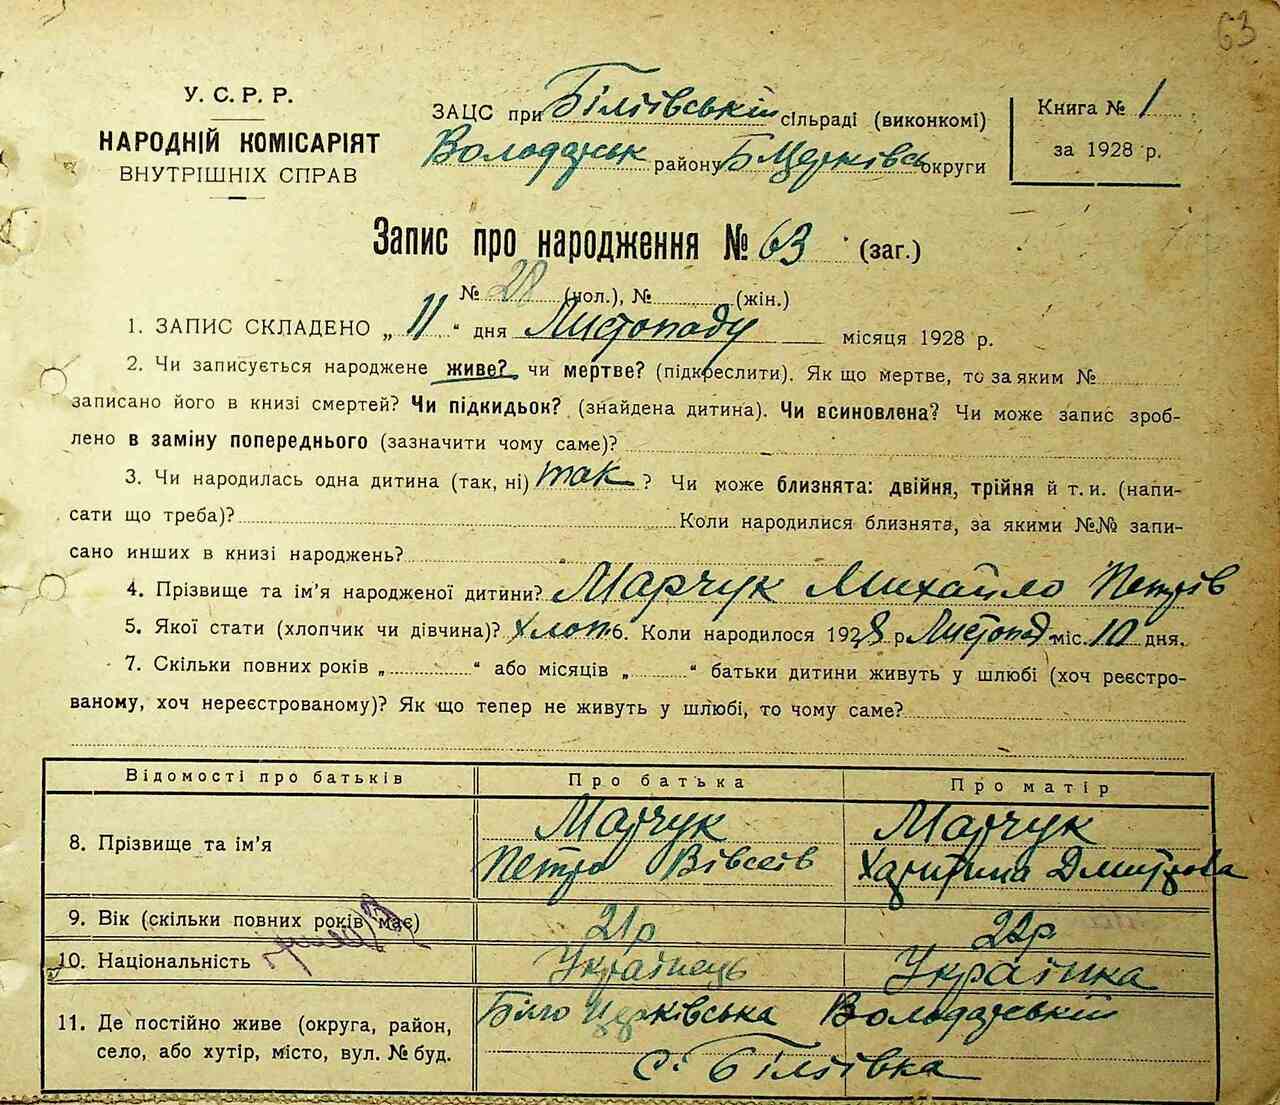 63
У. С. Р. Р.
НАРОДНІЙ КОМІСАРІЯТ
ВНУТРІШНІХ СПРАВ
ЗАЦС при Біліївській сільраді (виконкомі)
Володарськ району Б Церківсь округи
Книга № 1
за 1928 р.
Запис про народження № 63 (заг.)
№ 28 (чол.), № (жін.)
1. ЗАПИС СКЛАДЕНО „ 11 “ дня Листопаду місяця 1928 р.
2. Чи записується народжене живе? чи мертве? (підкреслити). Як що мертве, то за яким №
записано його в книзі смертей? Чи підкидьок? (знайдена дитина). Чи всиновлена? Чи може запис зроб-
лено в заміну попереднього (зазначити чому саме)?
3. Чи народилась одна дитина (так, ні) так ? Чи може близнята: двійня, трійня й т. и. (напи-
сати що треба)? Коли народилися близнята, за якими №№ запи-
сано инших в книзі народжень?
4. Прізвище та ім’я народженої дитини? Марчук Михайло Петрів
5. Якої стати (хлопчик чи дівчина)? Хлоп. 6. Коли народилося 1928 р Листопад міс. 10 дня.
7. Скільки повних років „ “ або місяців „ “ батьки дитини живуть у шлюбі (хоч реєстро-
ваному, хоч нереєстрованому)? Як що тепер не живуть у шлюбі, то чому саме?
Відомості про батьків Про батька Про матір
8. Прізвище та ім’я Марчук Марчук
Петро Вівсеїв Харитина Дмитрова
9. Вік (скільки повних років має) 21 р 22 р
10. Національність Українець Українка
11. Де постійно живе (округа, район, село, або хутір, місто, вул. № буд. Біло Церківська Володарській
с. Біліївка